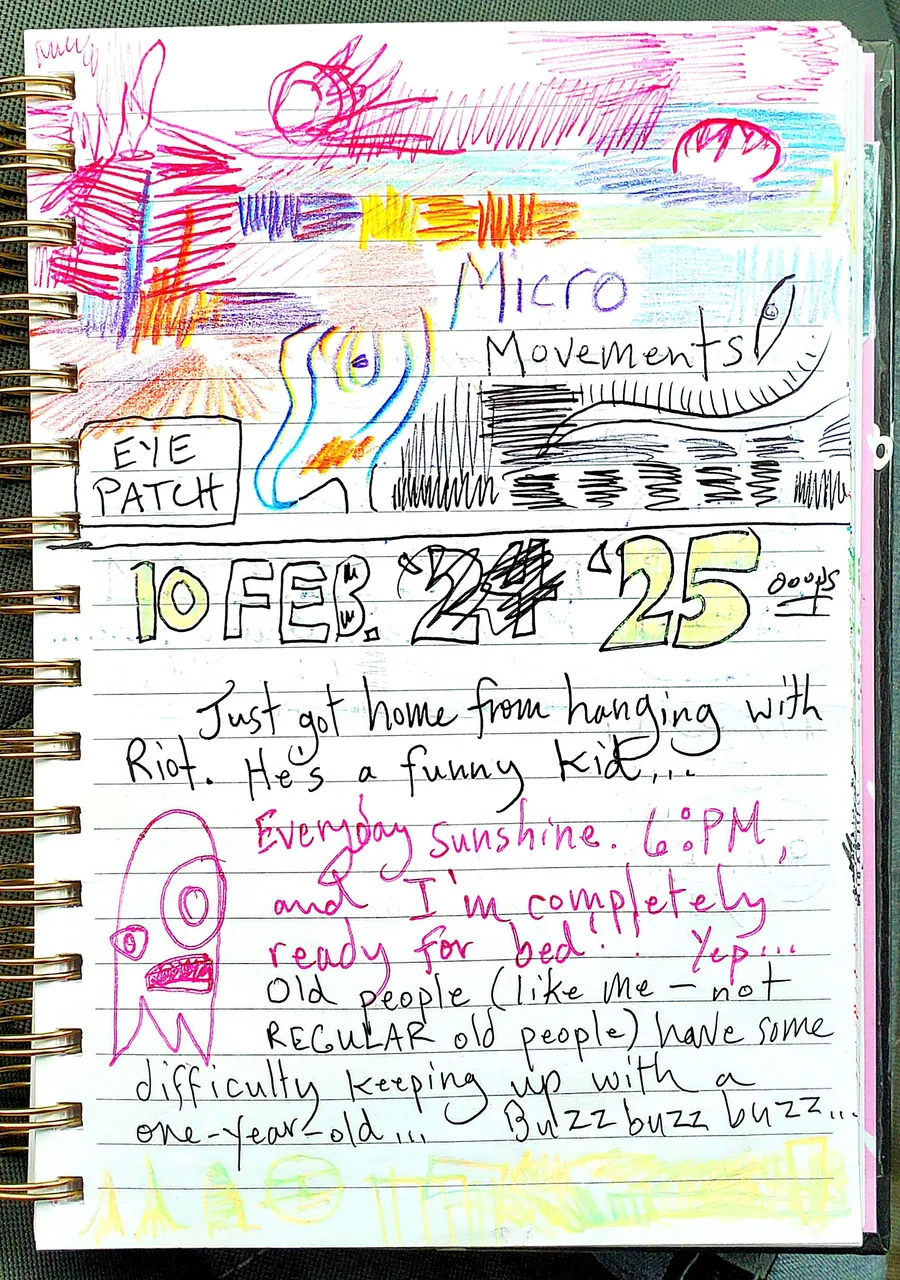 Micro
Movements
EYE
PATCH
10 FEB. '24 '25 ooops
Just got home from hanging with
Riot. He's a funny kid...
Everyday sunshine. 6:PM,
and I'm completely
ready for bed!! Yep...
Old people (like me – not
REGULAR old people) have some
difficulty keeping up with a
one-year-old... Buzz buzz buzz...